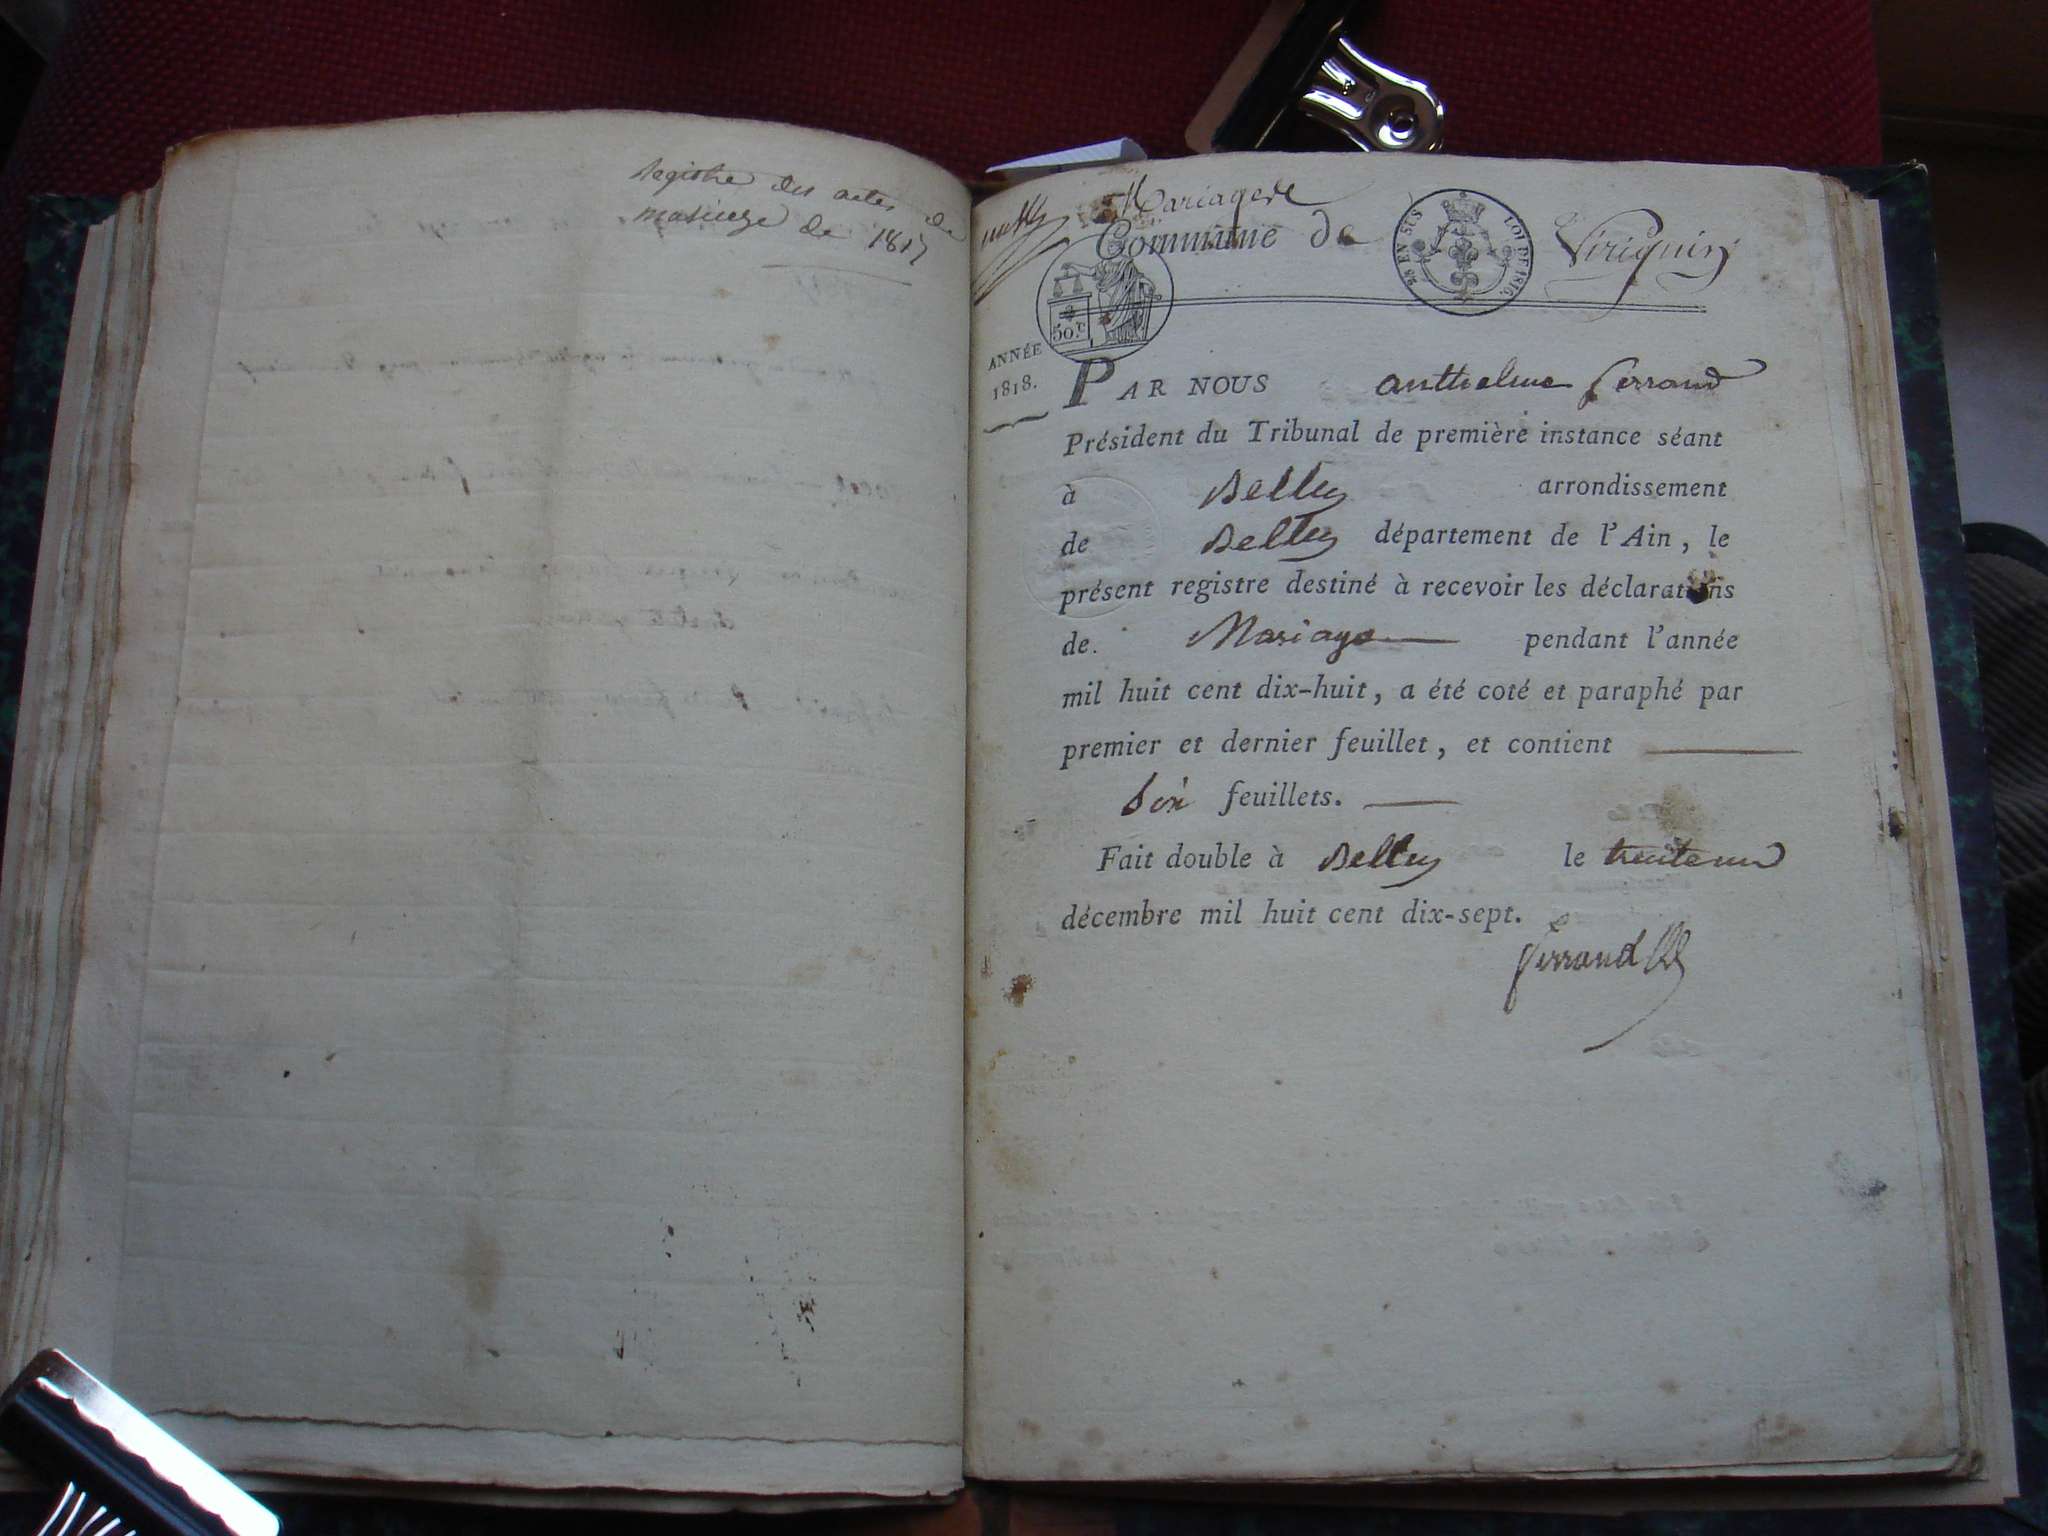 Registre des actes de
mariage de 1817
Mariage de
Commune de Virignin
25 EN SUS LOI DE 1816
50.c
ANNÉE
1818.
PAR NOUS anthelme ferrand
Président du Tribunal de première instance séant
à Belley arrondissement
de Belley département de l'Ain, le
présent registre destiné à recevoir les déclarations
de Mariage pendant l'année
mil huit cent dix-huit, a été coté et paraphé par
premier et dernier feuillet, et contient
Six feuillets.
Fait double à Belley le trente un
décembre mil huit cent dix-sept.
ferrand